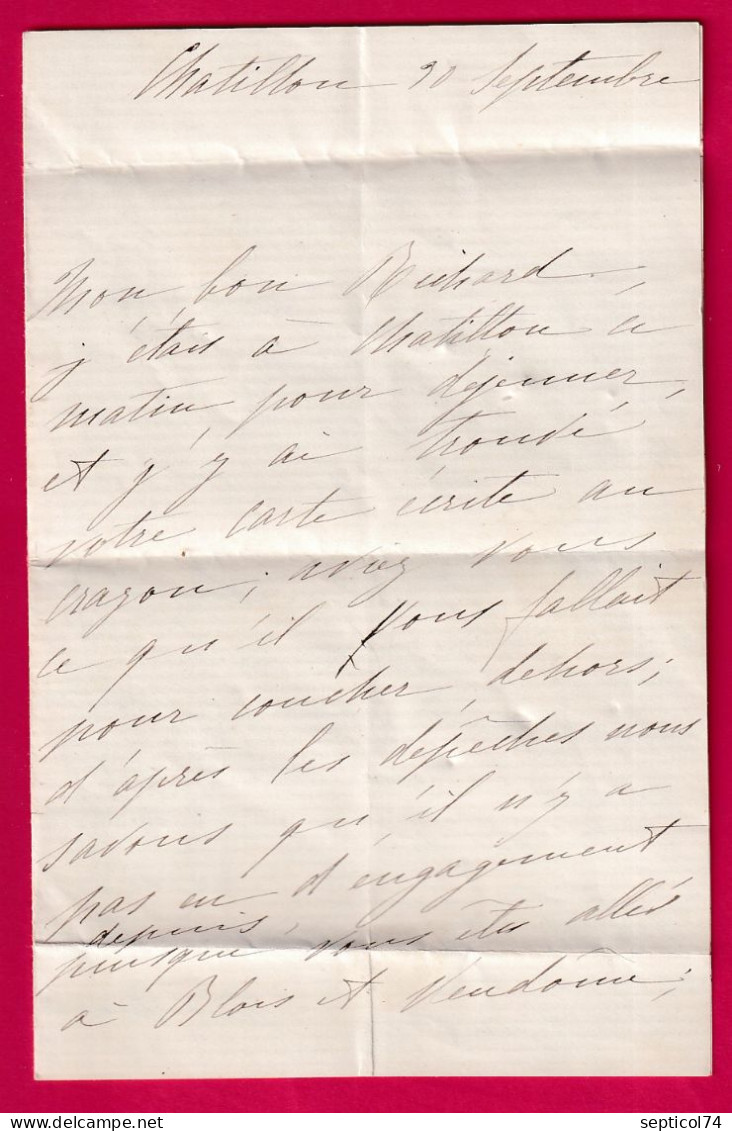 Chatillon 30 Septembre
Mon bon Richard,
j'étais à Chatillon ce
matin, pour déjeuner,
et j'y ai trouvé
votre carte écrite au
crayon; aviez vous
ce qu'il vous fallait
pour coucher dehors;
d'après les dépêches nous
savons qu'il n'y a
pas eu d'engagement
depuis,
puisque vous êtes allés
à Blois et Vendôme;
septicol74